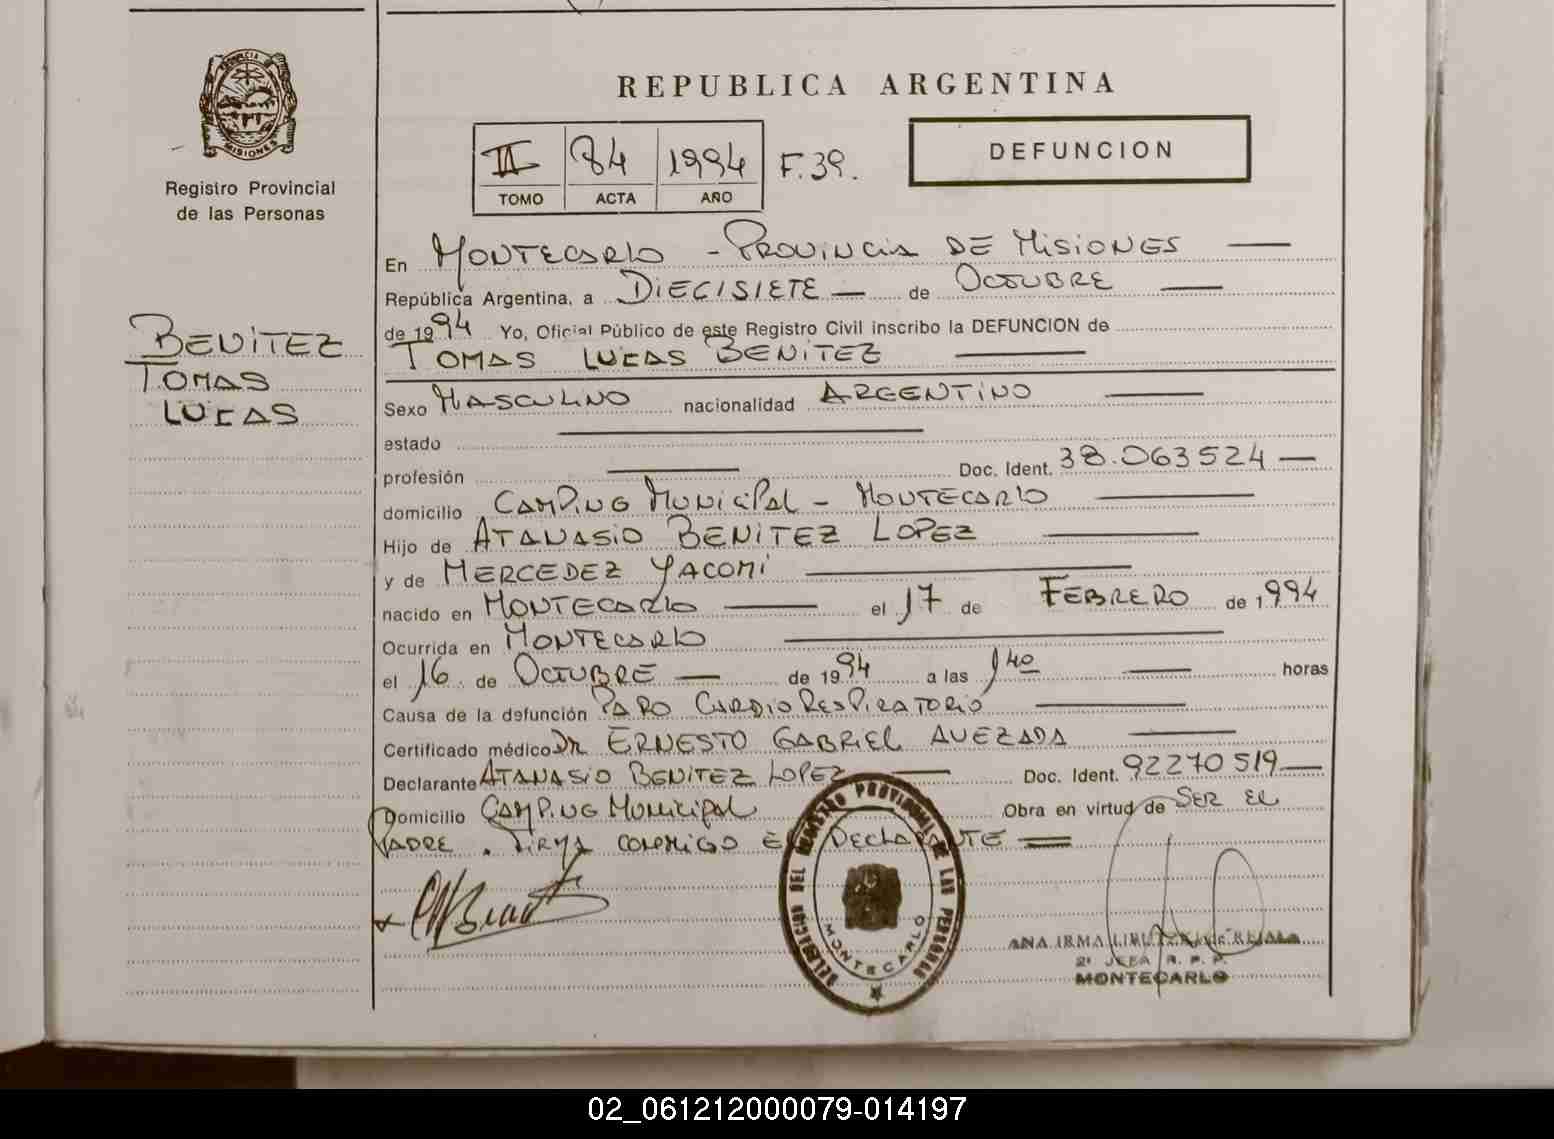 REPUBLICA ARGENTINA
PROVINCIA
MISIONES
Registro Provincial
de las Personas
II 84 1994 F.39.
TOMO ACTA AÑO
DEFUNCION
En MONTECARLO - PROVINCIA DE MISIONES
República Argentina, a DIECISIETE de OCTUBRE
de 1994 Yo, Oficial Público de este Registro Civil inscribo la DEFUNCION de
TOMAS LUCAS BENITEZ
BENITEZ
TOMAS
LUCAS
Sexo MASCULINO nacionalidad ARGENTINO
estado
profesión Doc. Ident. 38.063524
domicilio CAMPING MUNICIPAL - MONTECARLO
Hijo de ATANASIO BENITEZ LOPEZ
y de MERCEDEZ YACOMI
nacido en MONTECARLO el 17 de FEBRERO de 1994
Ocurrida en MONTECARLO
el 16 de OCTUBRE de 1994 a las 1 40 horas
Causa de la defunción PARO CARDIO RESPIRATORIO
Certificado médico Dr ERNESTO GABRIEL AVEZADA
Declarante ATANASIO BENITEZ LOPEZ Doc. Ident. 92270519
Domicilio CAMPING MUNICIPAL Obra en virtud de SER EL
PADRE. FIRMA CONMIGO EL DECLARANTE
DELEGACION DEL REGISTRO PROVINCIAL DE LAS PERSONAS
MONTECARLO
ANA IRMA
2ª JEFA R. P. P.
MONTECARLO
02_061212000079-014197